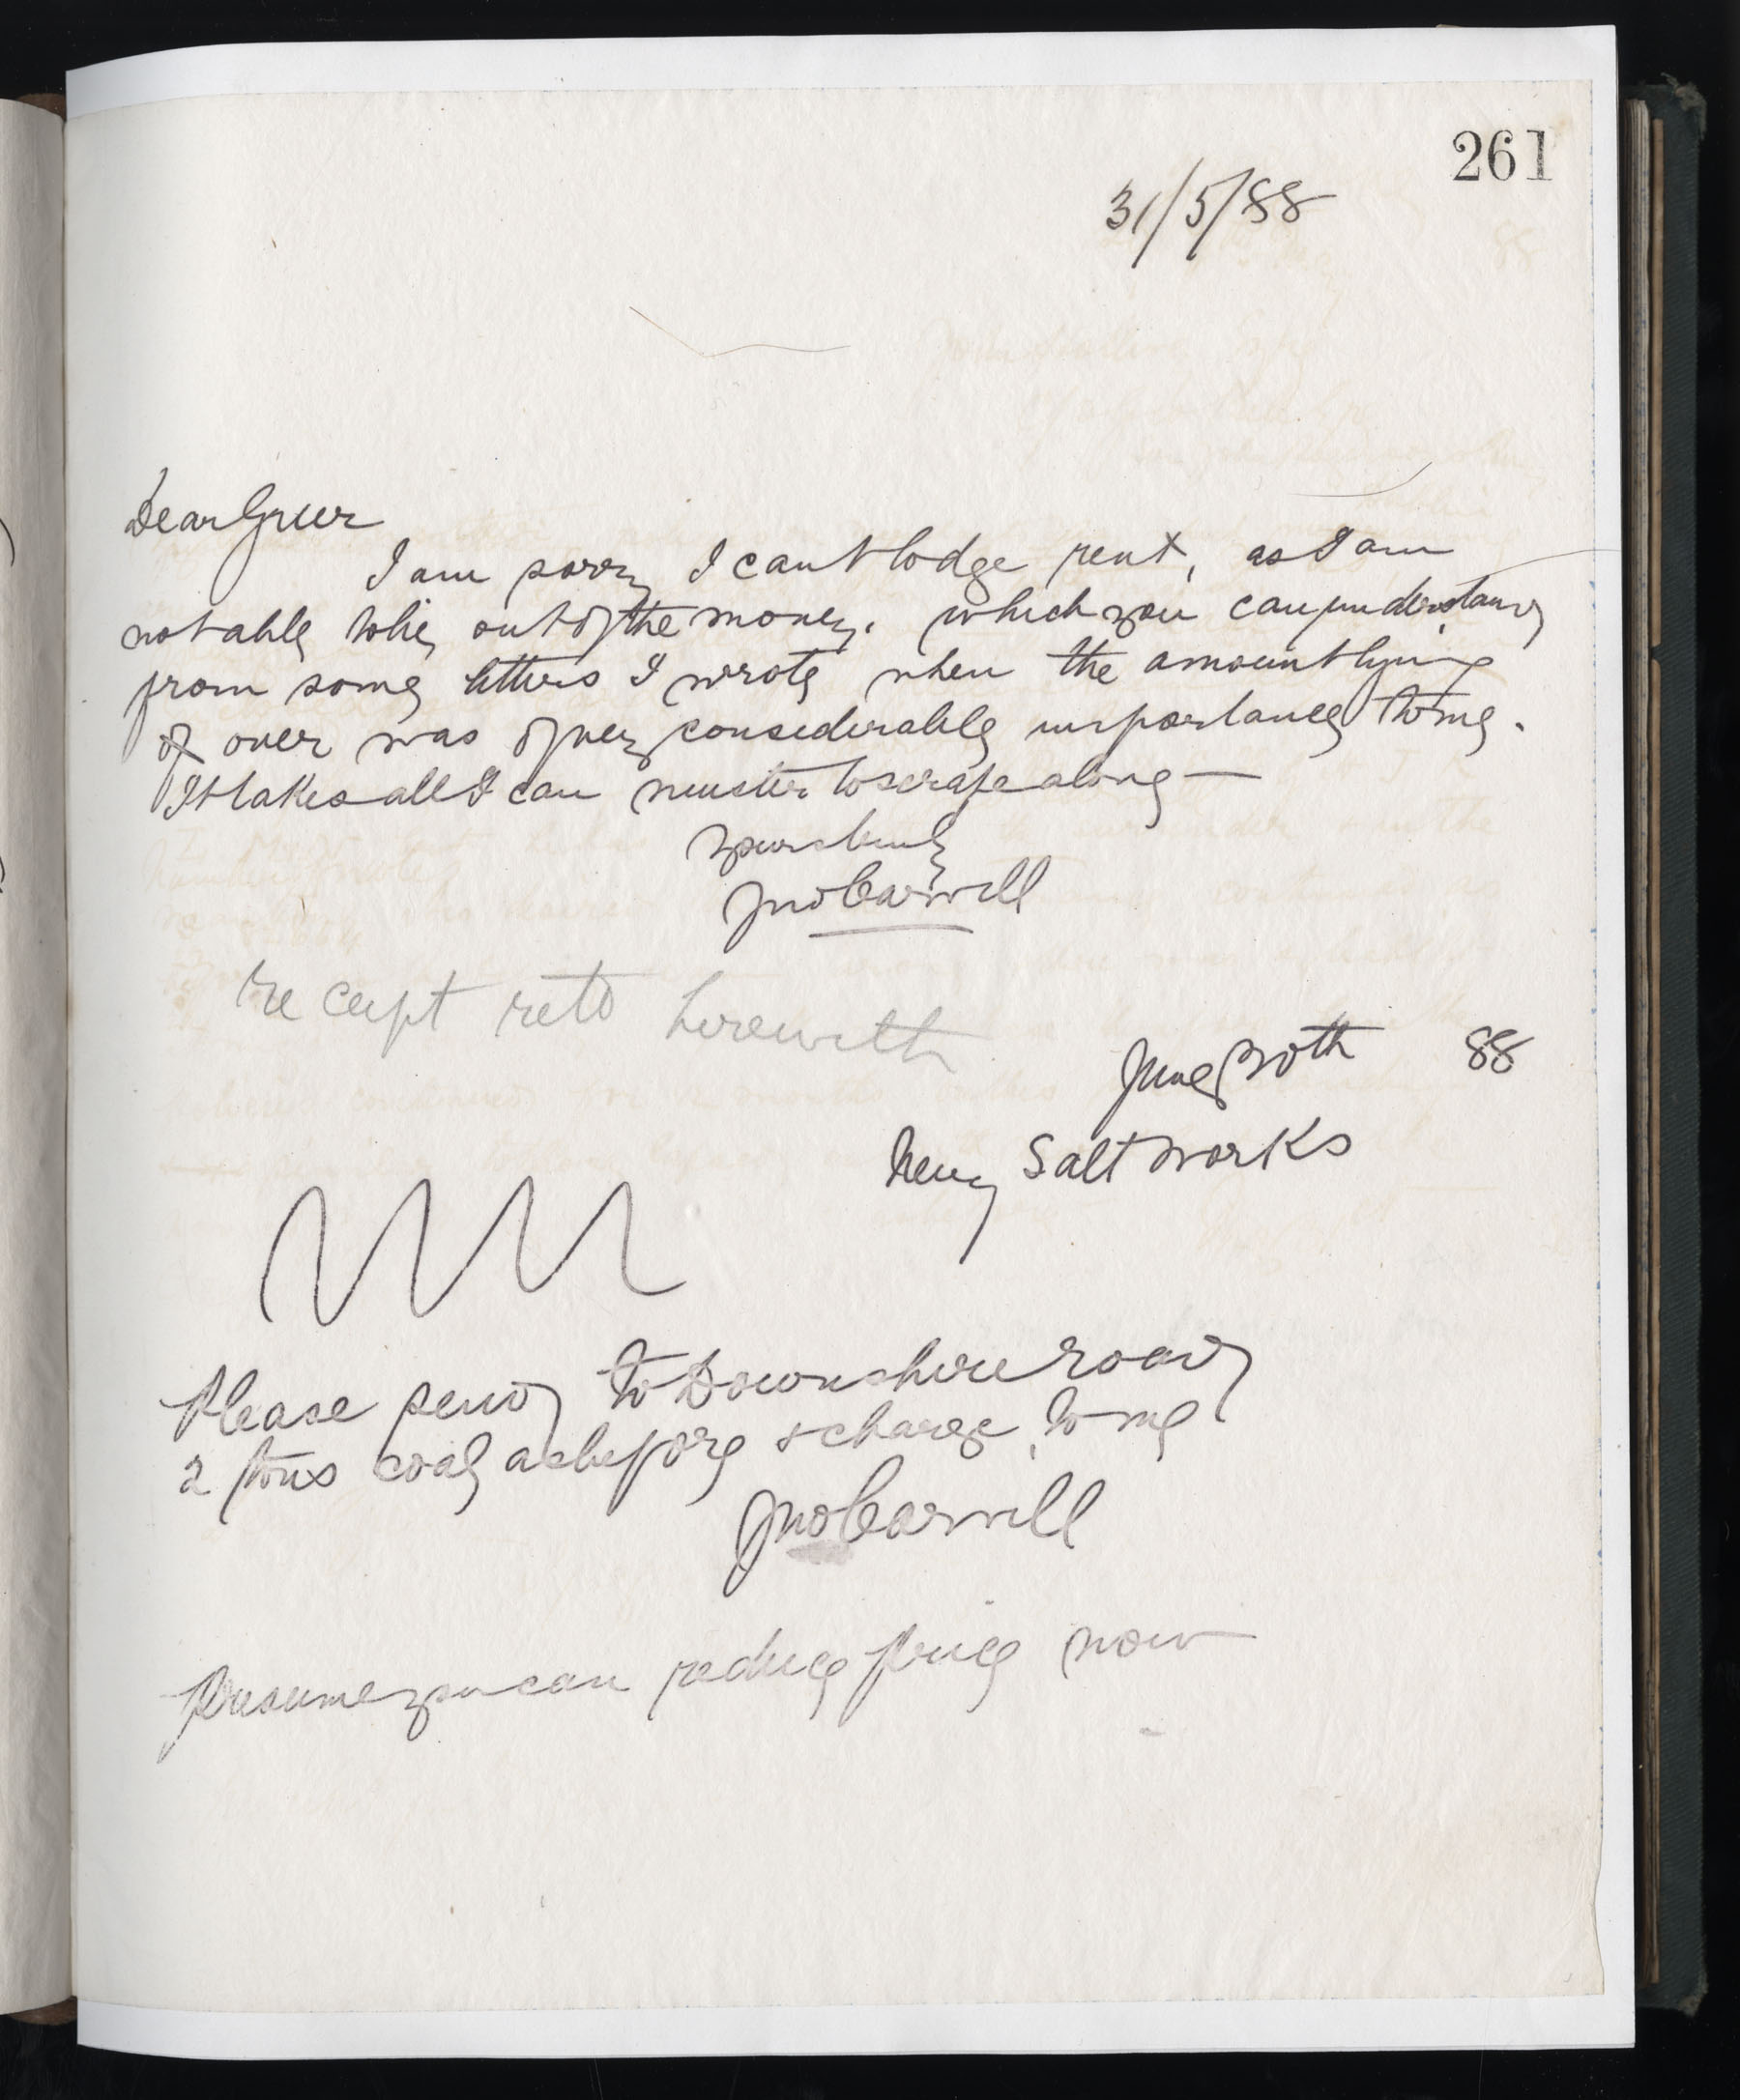 261
31/5/88
Dear Greer
I am sorry I cant lodge rent, as I am
not able to lie out of the money. which you can understand
from some letters I wrote when the amount lying
over was of very considerable importance to me.
It takes all I can muster to scrape along —
yours truly
Jno Carvill
receipt retd herewith
June 30th 88
Newry Salt Works
Please send to Downshire road
2 tons coal as before & charge to me
Jno Carvill
Presume you can reduce price now